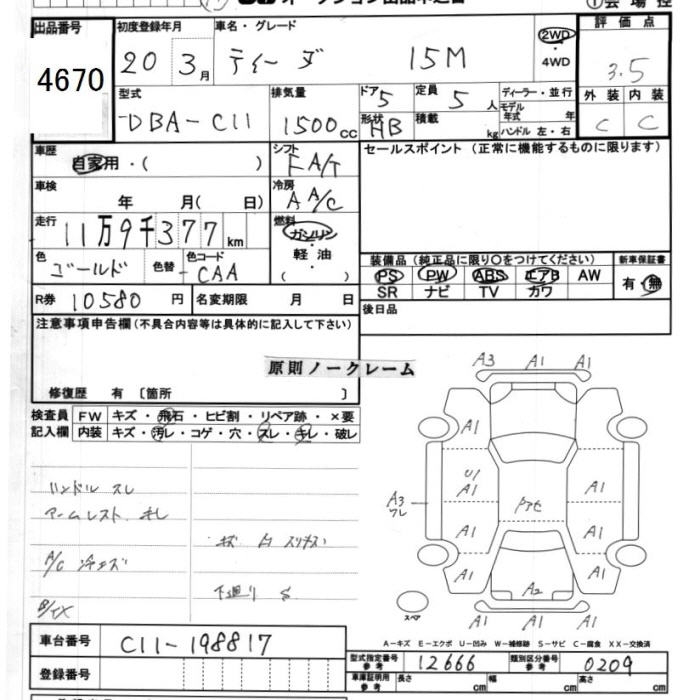 出品番号
4670
初度登録年月
20年 3月
車名・グレード
ティーダ 15M
2WD
・
4WD
評価点
3.5
型式
DBA-C11
排気量
1500cc
ドア
5
定員
5人
形状
HB
積載
kg
ディーラー・並行
モデル年式 年
ハンドル 左・右
外装 内装
C C
車歴
自家用・( )
シフト
FA/T
セールスポイント (正常に機能するものに限ります)
車検
年 月( 日)
冷房
AA/C
走行
11万9千377km
燃料
ガソリン
・
軽油
・
( )
色
ゴールド
色替
色コード
CAA
装備品 (純正品に限り○をつけてください)
PS PW ABS エアB AW
SR ナビ TV カワ
新車保証書
有・無
R券 10580円
名変期限 月 日
後日品
注意事項申告欄(不具合内容等は具体的に記入して下さい)
原則ノークレーム
修復歴 有〔箇所 〕
検査員
記入欄
FW キズ・飛石・ヒビ割・リペア跡・×要
内装 キズ・汚レ・コゲ・穴・スレ・キレ・破レ
ハンドル スレ
アームレスト キレ
A/C 冷エズ
下廻り S
A3 A1 A1
A1
U1
A1 A1
A3
A1 A1
A1 A1
A2
A1 A1 A1
スペア
A-キズ E-エクボ U-凹み W-補修跡 S-サビ C-腐食 XX-交換済
車台番号
C11-198817
登録番号
型式指定番号
参考
12666
類別区分番号
参考
0209
車庫証明用
参考
長さ cm 幅 cm 高さ cm